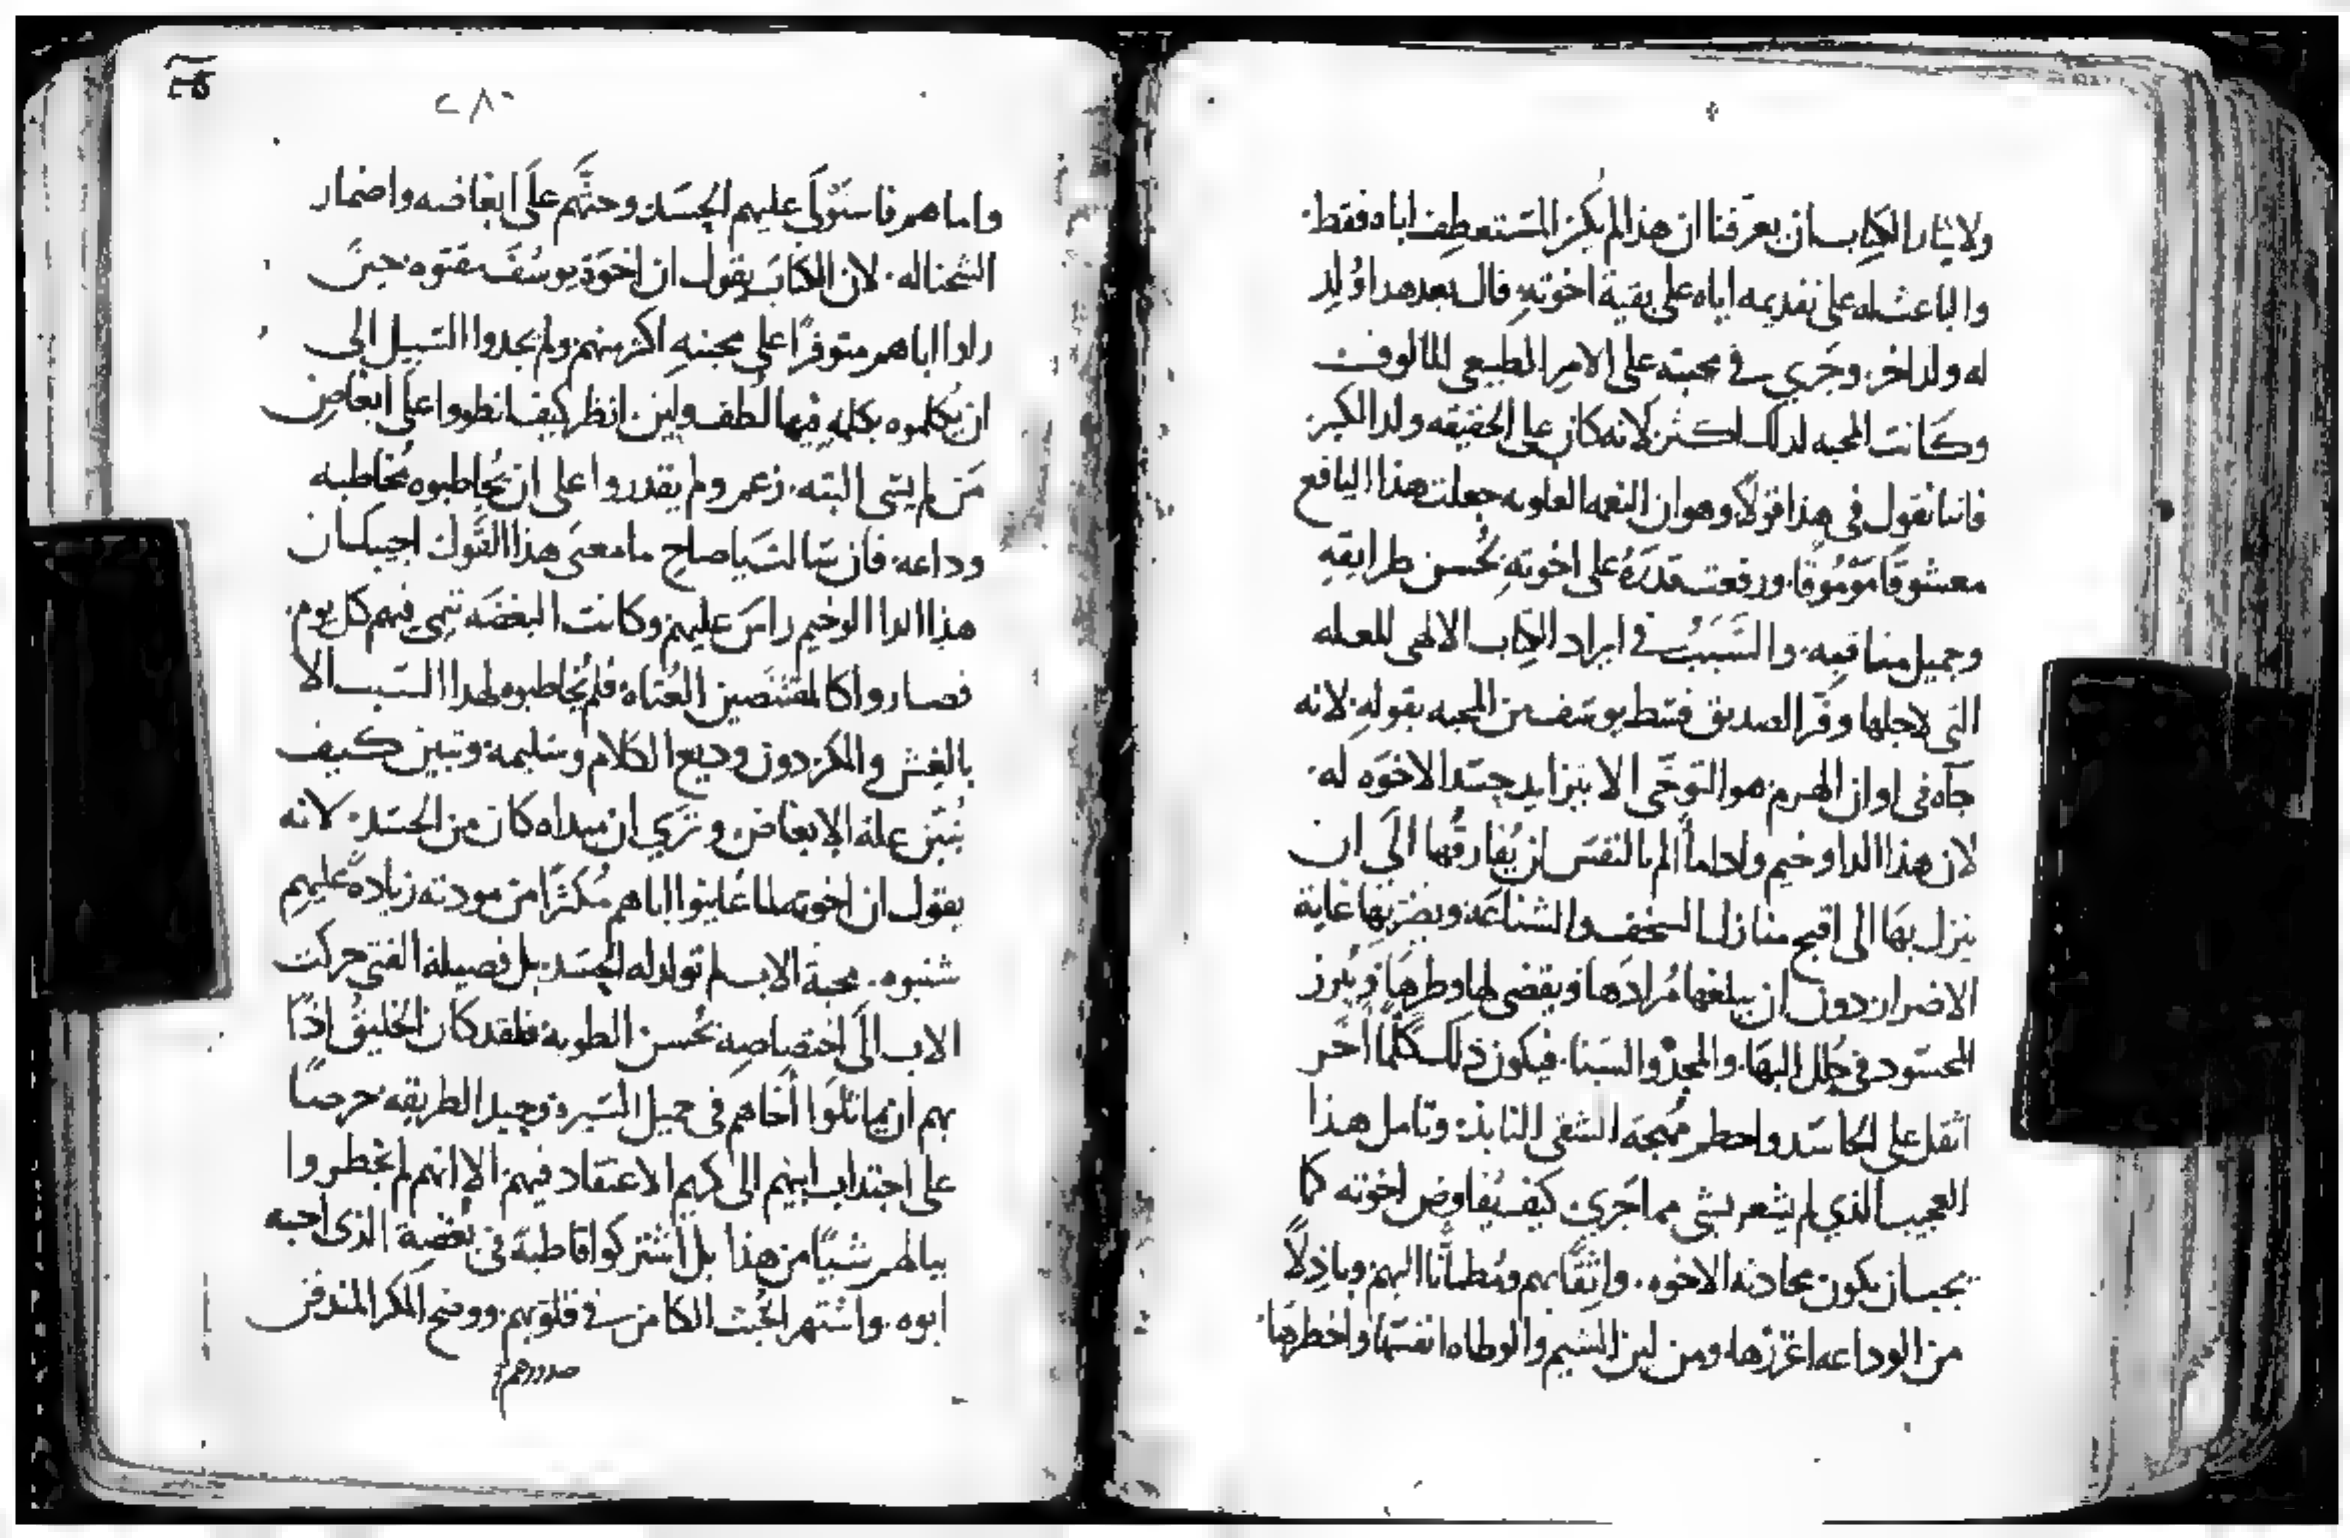 ولايثار الكاب ان يعرّفنا ان هذا لم يكن المستعطف اباه فقط
والباعث له على تقديمه اياه على بقية اخوتهِ قال بعد هدا وُلِد
له ولد اخر وجَري في محبته على الامر الطبيعي المالوف
وكانت المحبه لدلك اكثر لانه كان على الحقيقه ولد الكبر
فاننا نقول في هذا قولاً وهو ان النعمه العلويه جعلت هذا اليافع
معشوقًا مَوْمُوقًا ورفعت قدرَهُ على اخوتهِ بحُسن طرايقهِ
وجميل مناقبه والسَبَبُ في ايراد الكاب الالهى للعله
التى لاجلها وفّر الصديق قسط يوسف من المحبه بقوله لانه
جآه فى اوان الهرم هو التوخّى الا يتزايد حسَد الاخوَه له
لان هذا الدا وخيم واداما الم بالنفس لن يُفارقُها الَى ان
ينزل بهَا الى اقبح منازل السخف والشناعَه ويضرّ بها غاية
الاضرار دون ان يبلغها مُرادَها ويقضى لها وطرهَا ويُبرز
المحسَود في حُلل البهَا والمجدْ والسَنا فيكون ذلك كُلمّا احَر
اثقل على الحاسَد واحطر مُهجَة الشقى النابذ وتامل هذا
العجيب الذي لم يشعر بشى مما جَري كيف يُفاوض اخوته كما
يجب ان يكون محادثه الاخوه واثِقًا بهم ومُطمأنًا اليهم وباذِلاً
من الوداعه اغزرها ومن لين الشيم والوطاه انفسَها واخطرهَا
٢٨٠
واما هم فاستَوْلَى عليهم الحسَد وحثَّهم علَى ابغاضه واضمار
الشحنا له لان الكتابَ يقول ان اخوَة يوسُفَ مقتوه حينَ
راوا اباهم متوفرًا على محبتهِ اكثر منهم ولم يجدوا السَبيل الى
ان يُكلموه بكلمهٍ فيها لُطف ولين انظر كيف انطووا علَى ابغاض
مَن لم يسَى البته زعم ولم يقدروا على ان يُخاطبوه مُخاطبه
وداعه فان سَالت يا صاح ما معنىَ هذا القَول اجيبك ان
هذا الدا الوخيم راسَ عليهم وكانت البغضَه تنمي فيهم كل يوم
فصاروا كالمقتنَصين العُتاه فلم يُخاطبوه لهدا السَبب الا
بالغش والمكر دون وديع الكلام وسَليمه وتبين كيف
يُبيّن علة الابغاض وترَي ان مبداه كان من الحسَد لانه
يقول ان اخوته لما عُاينوا اباهم مُكثرًا من مودته زيادهً عليهم
شنبوه محبة الاب لم تولد له الحسَد بل فضيلة الفتي حركت
الاب الَى اختصاصِه بحُسن الطويه فلقد كان الخليقُ اذًا
بهم ان يماثلَوا أخاهم في جميل السَيره وحميد الطريقه حرصًا
على اجتداب ابيهم الى كريم الاعتقاد فيهم الا انهم لم يُخطروا
ببالهم شيًا من هذا بل اشتركوا قاطبةً في بُغضة الذى احبه
ابوه واشتهر الخُبث الكامن في قلوبهم ووضح المكر المندفن
صدورهم